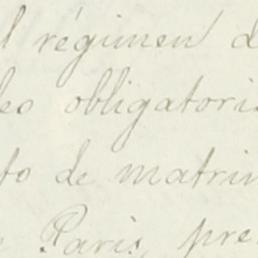 l régimen d
leo obligatorio
to de matrim
e Paris, pre